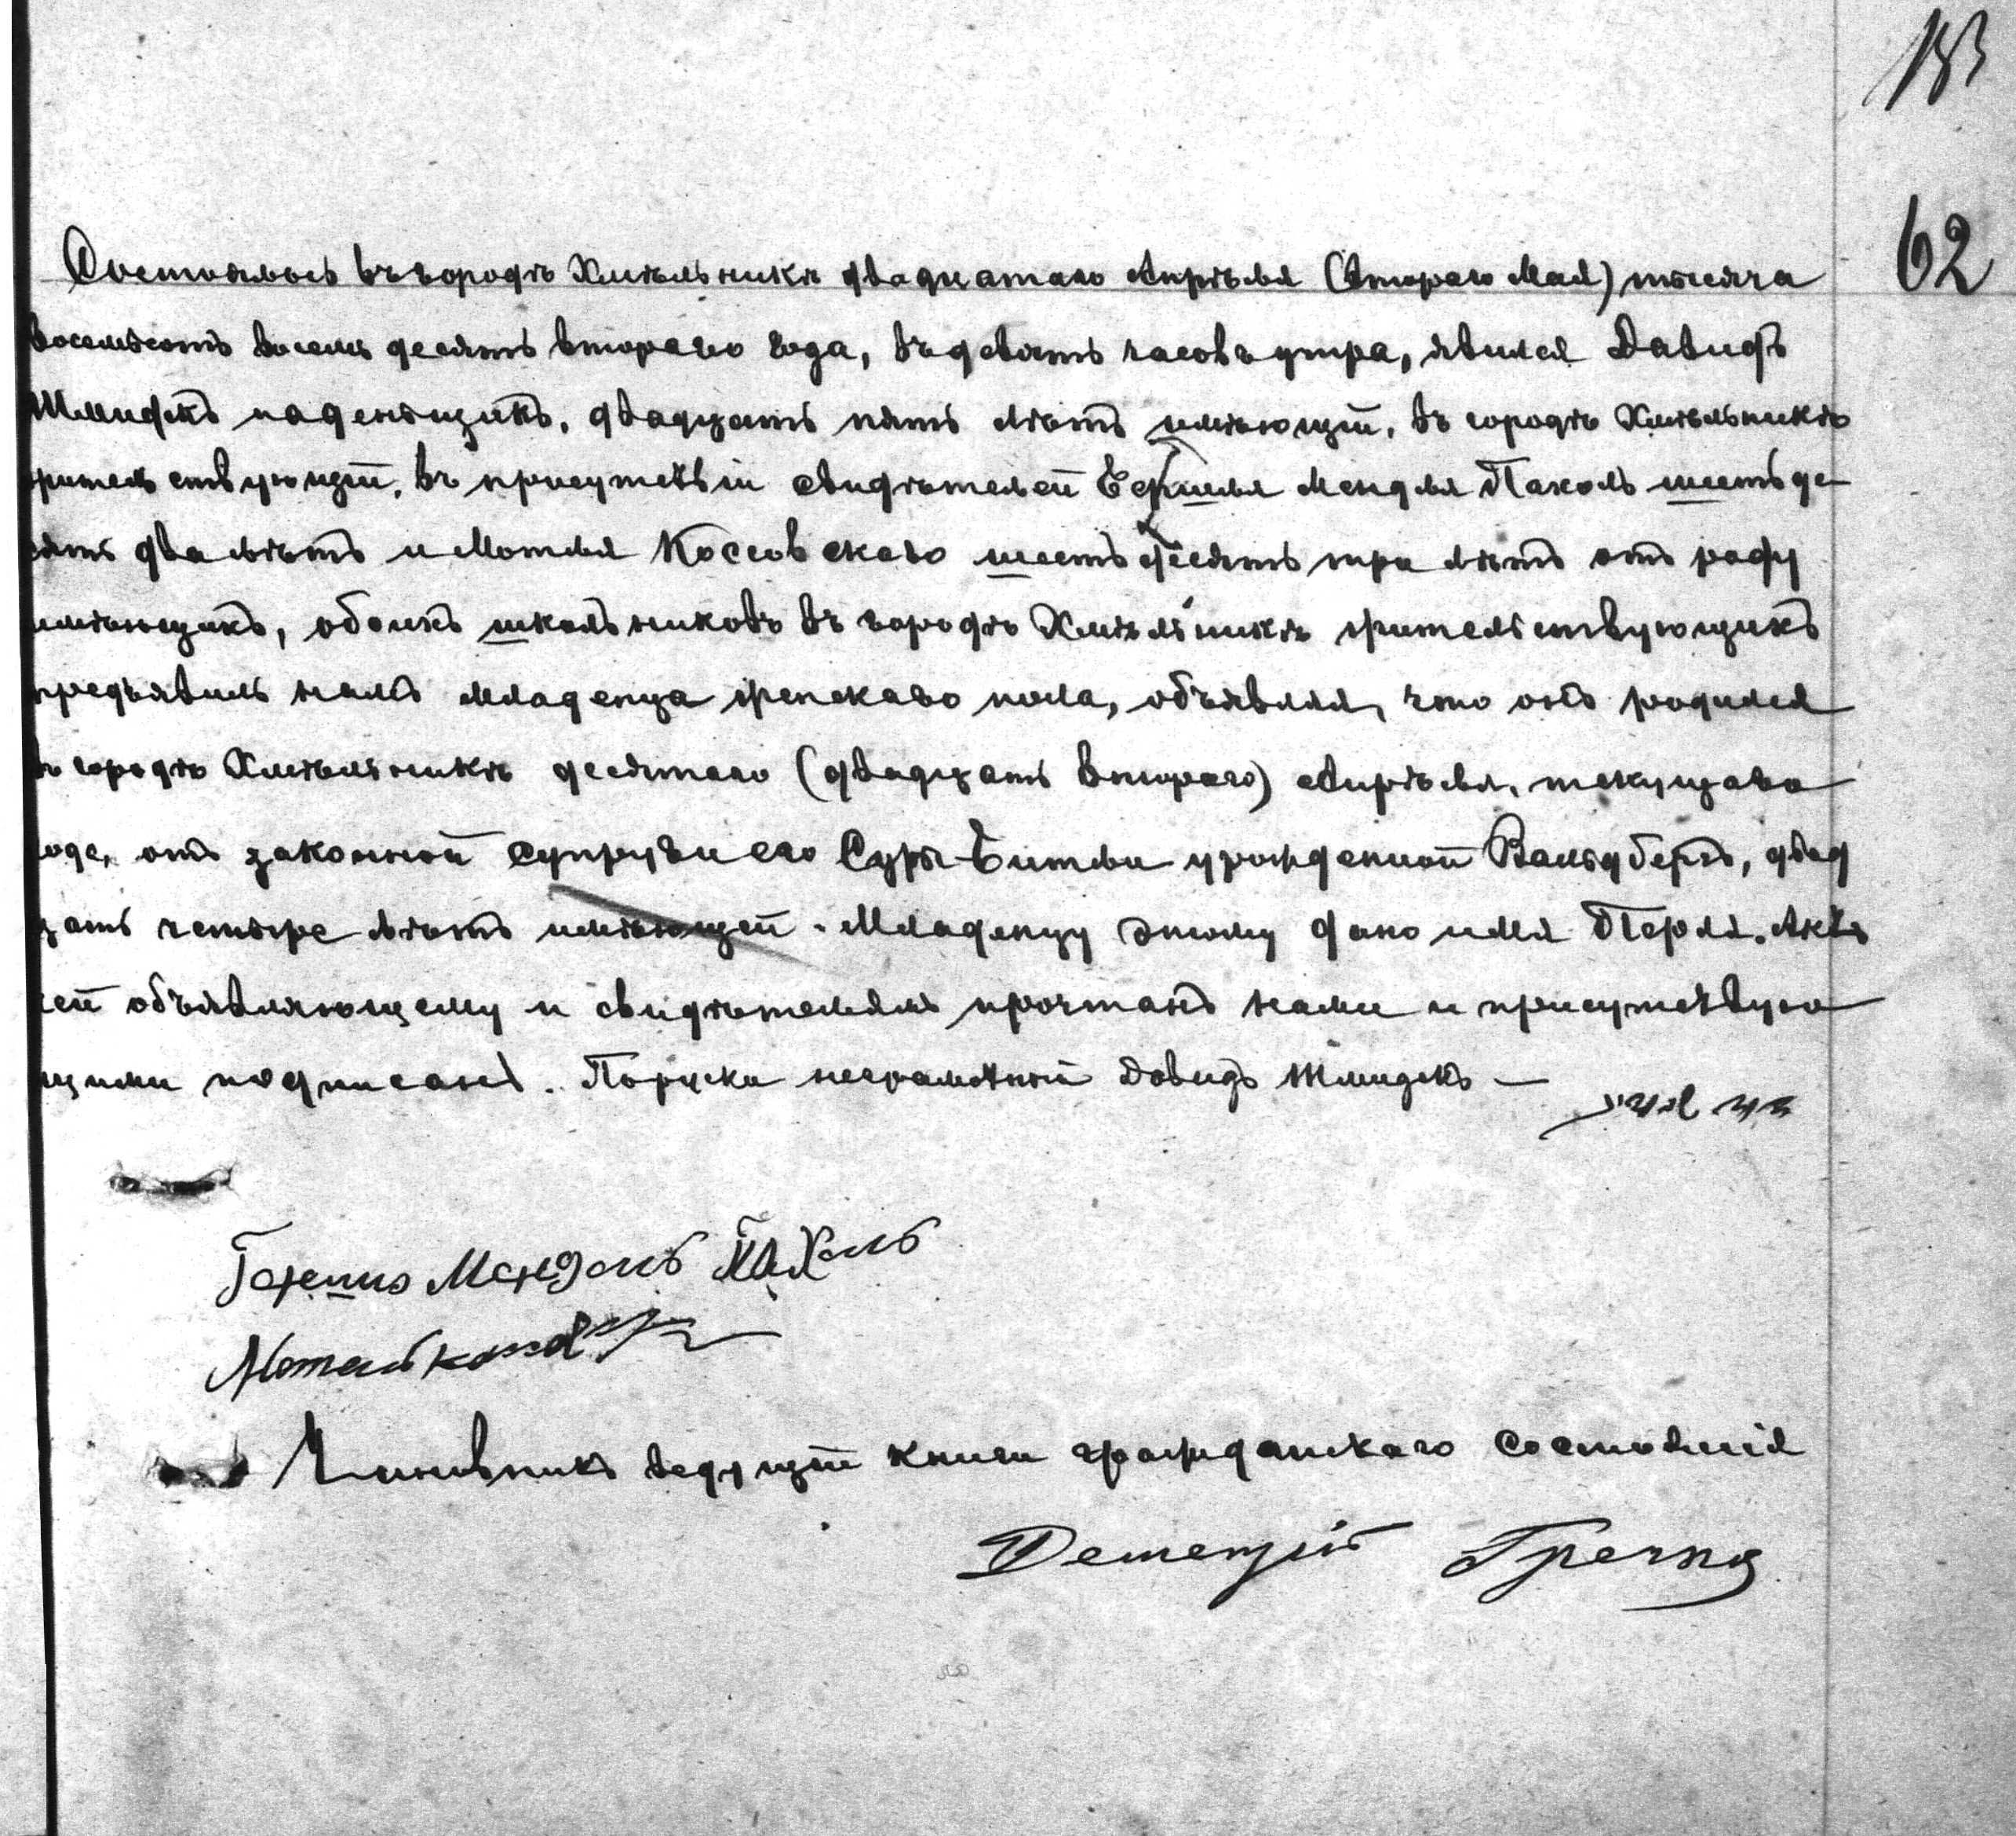 183
62
Состоялось въ городѣ Хмѣльникѣ двадцатаго Апрѣля (втораго Мая) тысяча
восемьсотъ восемь десятъ втораго года, въ девять часовъ утра, явился Давидъ
Шмидекъ поденьщикъ, двадцать пять лѣтъ имѣющій, въ городѣ Хмѣльникѣ
жительствующій, въ присутствіи свидѣтелей Гершля Мендля Пахоль шестьде-
сятъ два лѣтъ и Мотля Коссовскаго шестьдесятъ три лѣтъ отъ роду
имѣющихъ, обоихъ школьниковъ въ городѣ Хмѣльникѣ жительствующихъ
предъявилъ намъ младенца женскаго пола, объявляя, что онъ родился
въ городѣ Хмѣльникѣ десятаго (двадцать втораго) Апрѣля, текущаго
года, отъ законной супруги его Суры Битли урожденной Вальдбергъ, двад
цать четыре лѣтъ имѣющей. Младенцу этому дано имя Перля. Актъ
сей объявляющему и свидѣтелямъ прочтанъ нами и присутствую
щими подписанъ. Давидъ Шмидекъ —
Гершъ Мендель Пахоль
Мотель
Чиновникъ ведущій книги гражданскаго состоянія